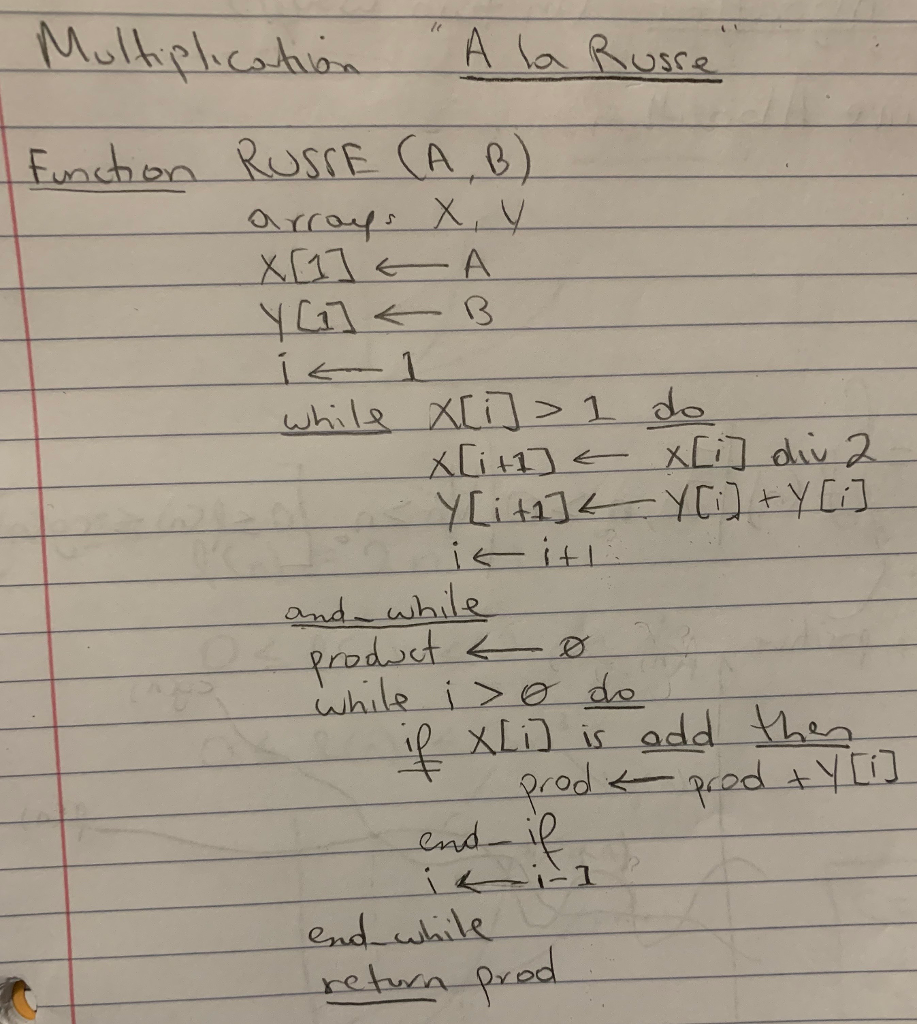 Multiplication "A la Russe"
Function RUSSE (A, B)
arrays X, Y
X[1] ← A
Y[1] ← B
i ← 1
while X[i] > 1 do
X[i+1] ← X[i] div 2
Y[i+1] ← Y[i] + Y[i]
i ← i+1
and_while
product ← 0
while i > 0 do
if X[i] is add then
prod ← prod + Y[i]
end_if
i ← i-1
end_while
return prod